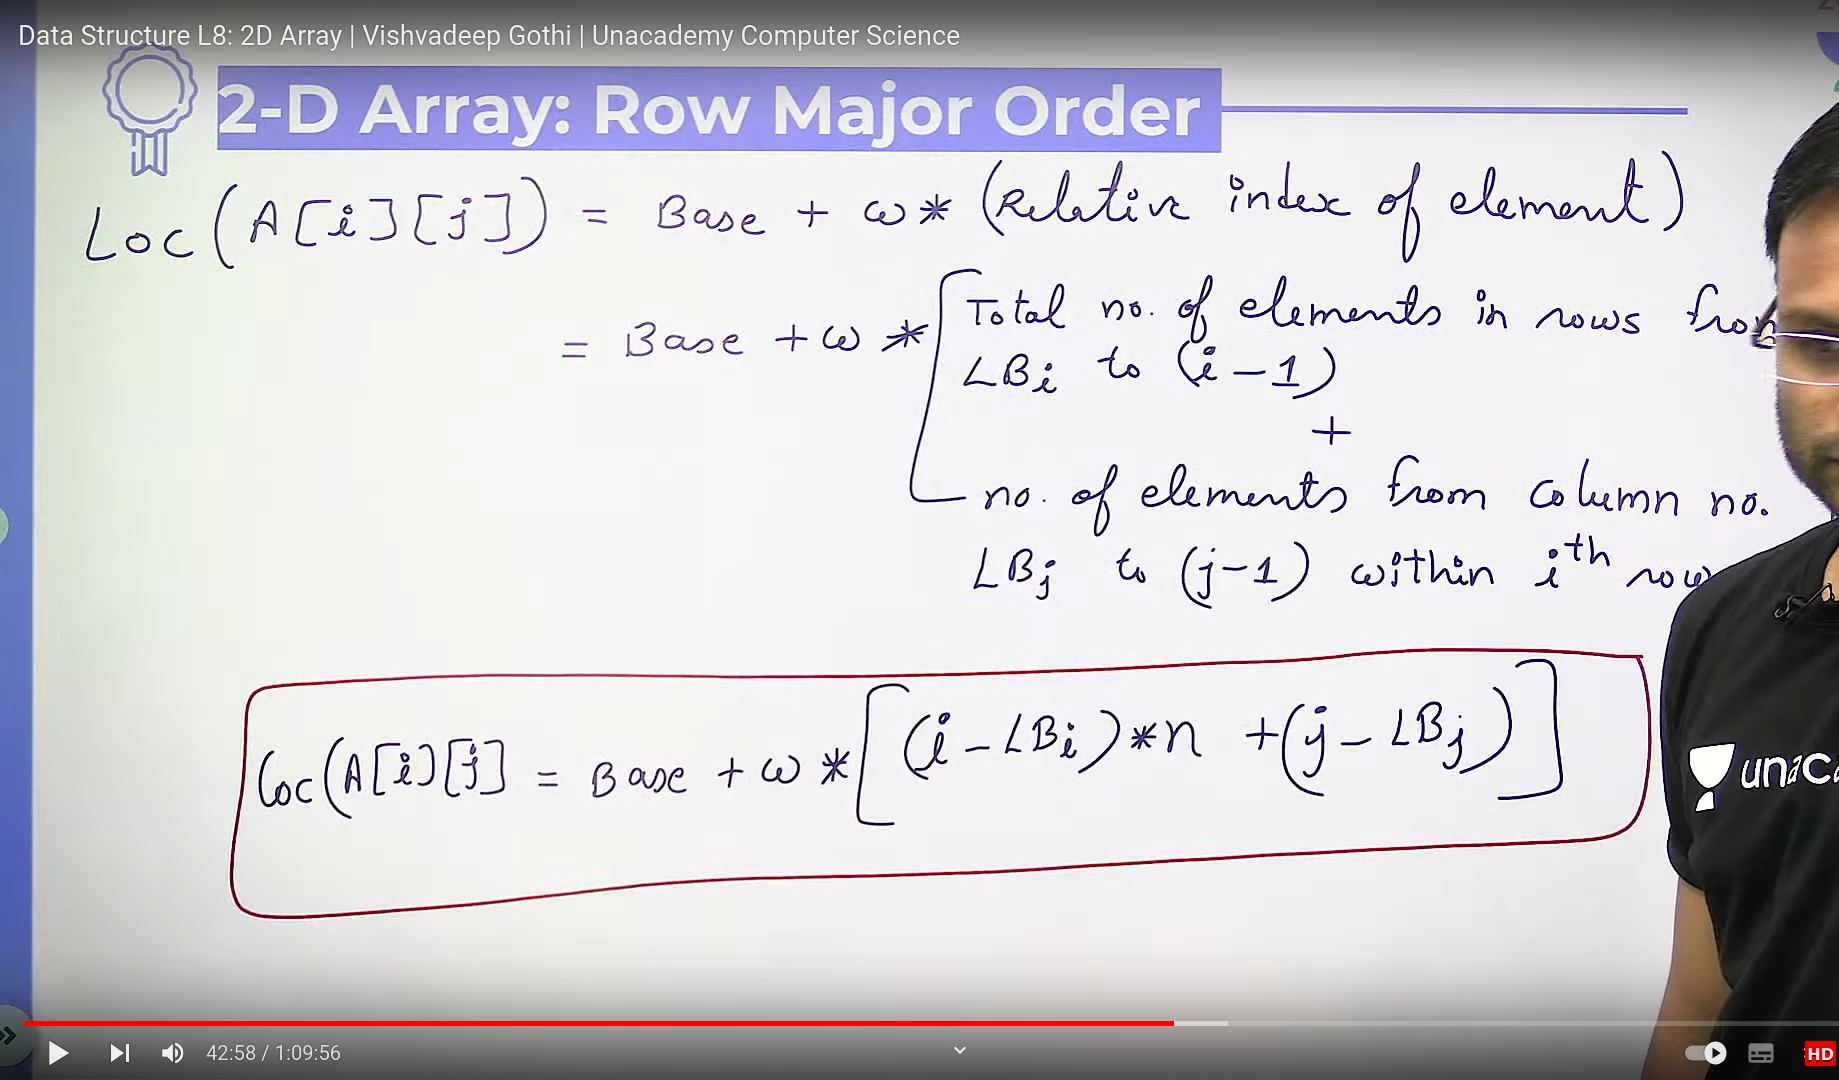 Data Structure L8: 2D Array | Vishvadeep Gothi | Unacademy Computer Science
2-D Array: Row Major Order
Loc (A[i][j]) = Base + ω * (Relative index of element)
= Base + ω * [Total no. of elements in rows from
LBi to (i-1)
+
no. of elements from column no.
LBj to (j-1) within ith row
Loc(A[i][j] = Base + ω * [(i - LBi) * n + (j - LBj)]
unac
42:58 / 1:09:56
HD